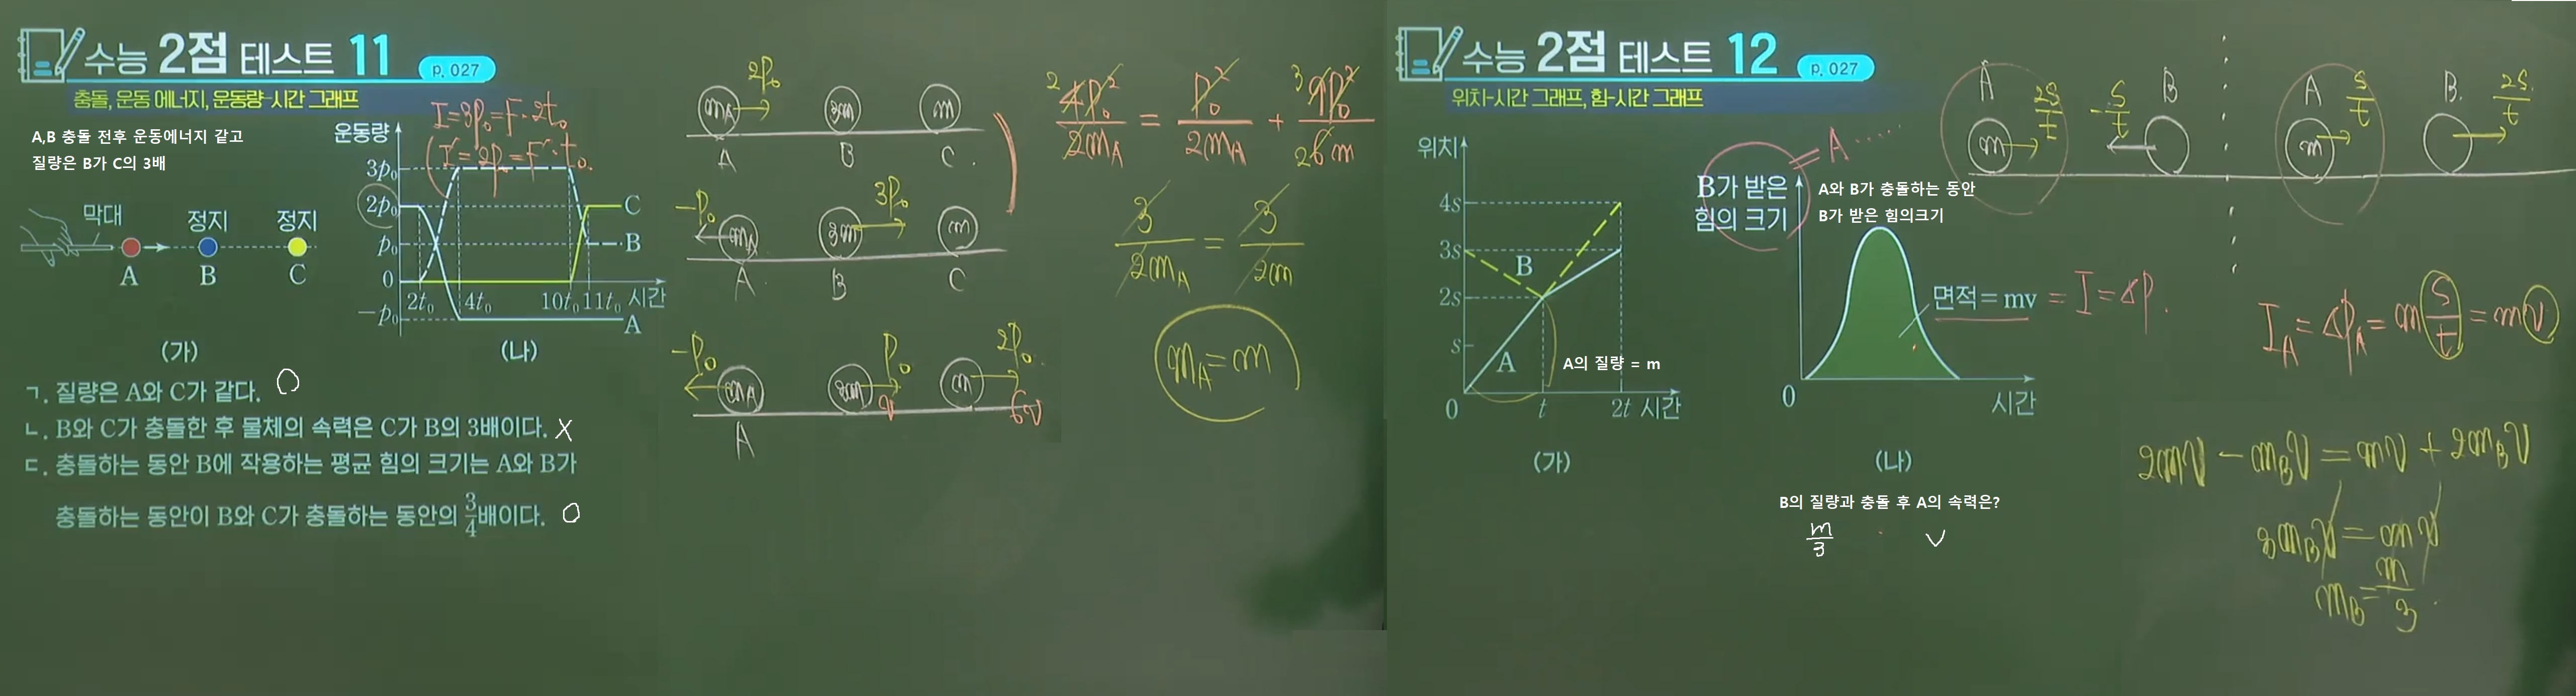 수능 2점 테스트 11 p. 027
충돌, 운동 에너지, 운동량-시간 그래프
A,B 충돌 전후 운동에너지 같고
질량은 B가 C의 3배
막대 정지 정지
A B C
(가)
운동량
I=3p₀=F·2t₀
I'=2p₀=F'·t₀.
3p₀
2p₀ C
p₀ B
0
2t₀ 4t₀ 10t₀ 11t₀ 시간
-p₀ A
(나)
ㄱ. 질량은 A와 C가 같다. O
ㄴ. B와 C가 충돌한 후 물체의 속력은 C가 B의 3배이다. X
ㄷ. 충돌하는 동안 B에 작용하는 평균 힘의 크기는 A와 B가
충돌하는 동안이 B와 C가 충돌하는 동안의 3/4배이다. O
2p₀
mA 3m m
A B C
-p₀ 3p₀
mA 3m m
A B C
-p₀ p₀ 2p₀
mA 3m m
v 6v
A
2 4p₀²/2mA = p₀²/2mA + 3 9p₀²/2 6m
3/2mA = 3/2m
mA=m
수능 2점 테스트 12 p. 027
위치-시간 그래프, 힘-시간 그래프
위치
4s
3s
2s
s
0 t 2t 시간
B
A
A의 질량 = m
(가)
B가 받은
힘의 크기
= A
A와 B가 충돌하는 동안
B가 받은 힘의크기
면적=mv = I=Δp.
0 시간
(나)
B의 질량과 충돌 후 A의 속력은?
m/3 v
A 2s/t -s/t B
m
A s/t B. 2s/t
m
I_A=Δp_A=m s/t=mv
2mv-m_Bv=mv+2m_Bv
3m_Bv=mv
m_B=m/3.